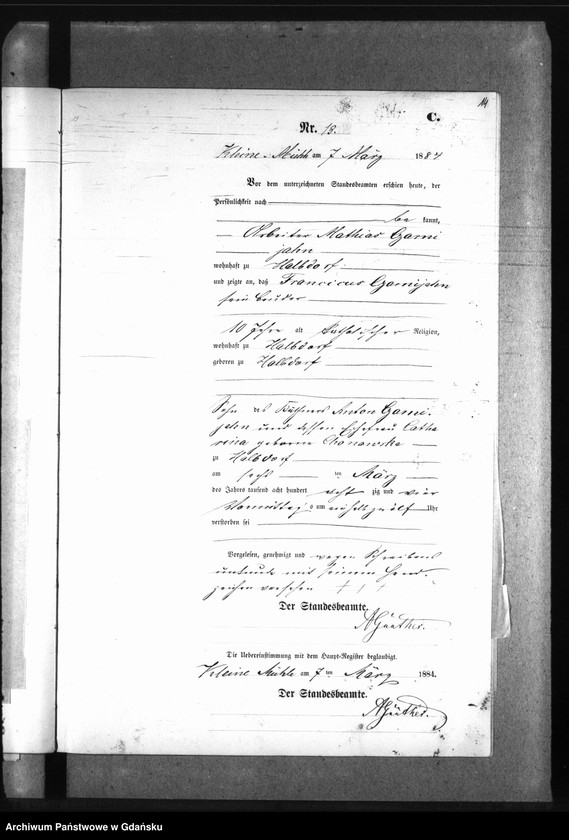 14
C.
Nr. 18.
Kleine-Mühle am 7 März 1884
Vor dem unterzeichneten Standesbeamten erschien heute, der
Persönlichkeit nach
be kannt,
Arbeiter Mathias Czarni
jahn
wohnhaft zu Halbdorf
und zeigte an, daß Franciscus Czarnijahn
sein bruder
10 Jahre alt katholischer Religion,
wohnhaft zu Halbdorf
geboren zu Halbdorf
Sohn des Käthners Anton Czarni-
jahn und dessen Ehefrau Catha
rina geborene
zu Halbdorf
am sechs ten März
des Jahres tausend acht hundert acht zig und vier
Vormittags um zwölf Uhr
verstorben sei
Vorgelesen, genehmigt und wegen Schreibens
unkunde mit seinem Hand-
zeichen versehen + + +
Der Standesbeamte.
AGünther.
Die Uebereinstimmung mit dem Haupt-Register beglaubigt.
Kleine Mühle am 7 ten März 1884.
Der Standesbeamte.
AGünther.
Archiwum Państwowe w Gdańsku